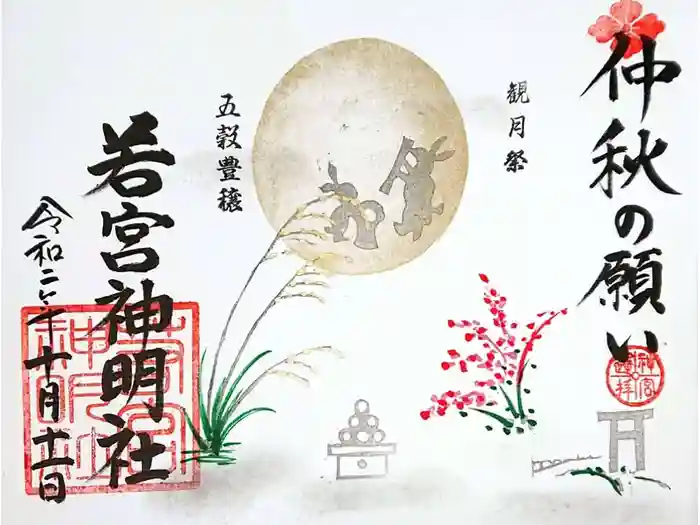 仲秋の願い
神宮
遙拝
観月祭
五穀豊穣
若宮神明社
若宮
神明社
令和二年十月十一日